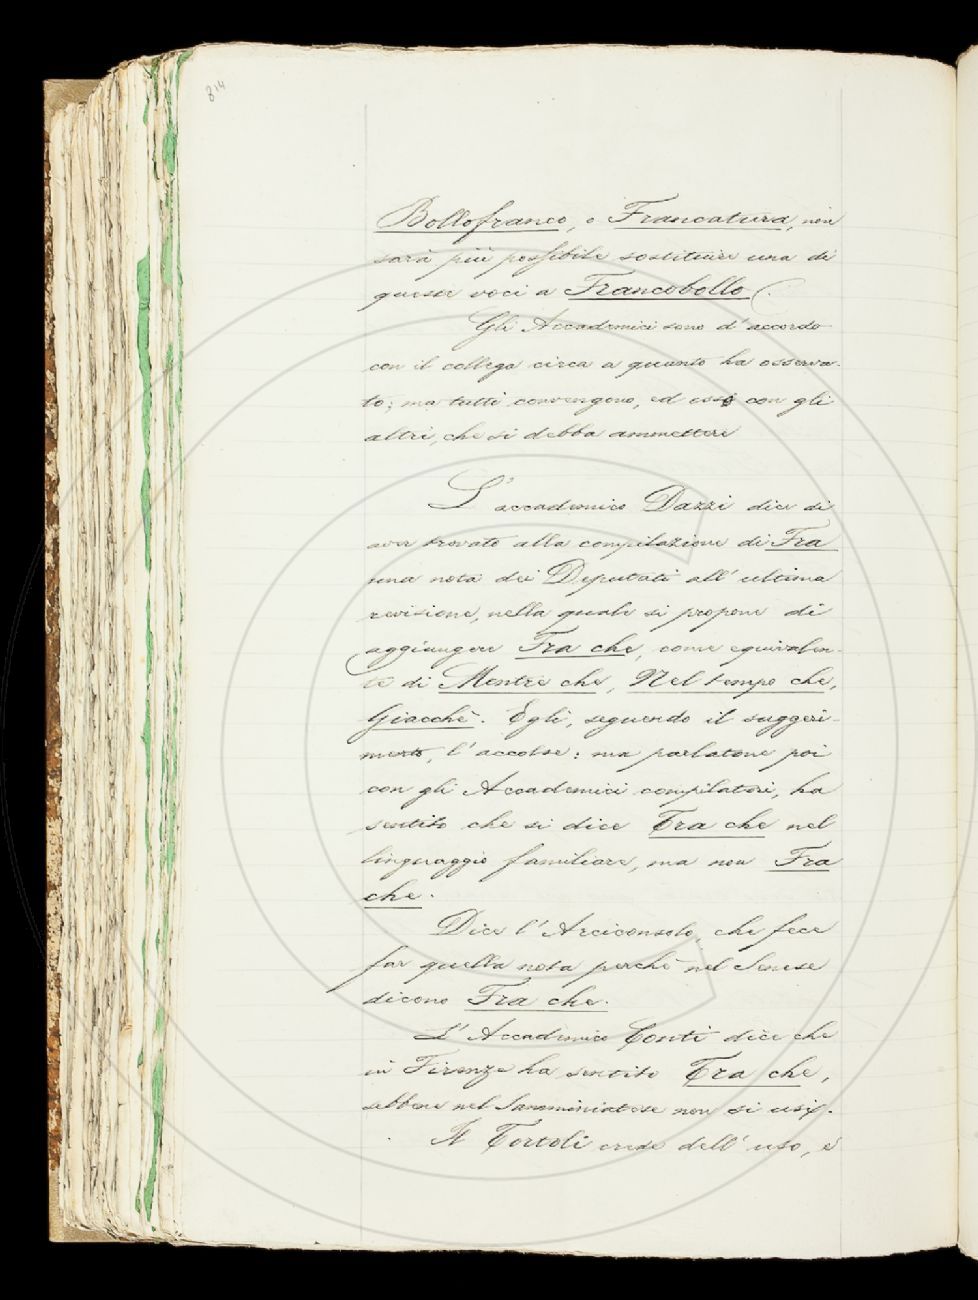 814
Bollofranco, o Francatura, non
sarà più possibile sostituire una di
queste voci a Francobollo.
Gli Accademici sono d'accordo
con il collega circa a quanto ha osserva-
to; ma tutti convengono, ed esso con gli
altri, che si debba ammettere
L'accademico Dazzi dice di
aver trovato alla compilazione di Fra
una nota dei Deputati all'ultima
revisione, nella quale si propone di
aggiungere Fra che, come equivalen-
te di Mentre che, Nel tempo che,
Giacchè. Egli, seguendo il suggeri-
mento, l'accolse: ma parlatone poi
con gli Accademici compilatori, ha
sentito che si dice Tra che nel
linguaggio familiare, ma non Fra
che.
Dice l'Arciconsolo, che fece
far quella nota perchè nel Senese
dicono Fra che.
L'Accademico Conti dice che
in Firenze ha sentito Tra che,
sebbene nel Samminiatese non si usi.
Il Tortoli crede dell'uso, e